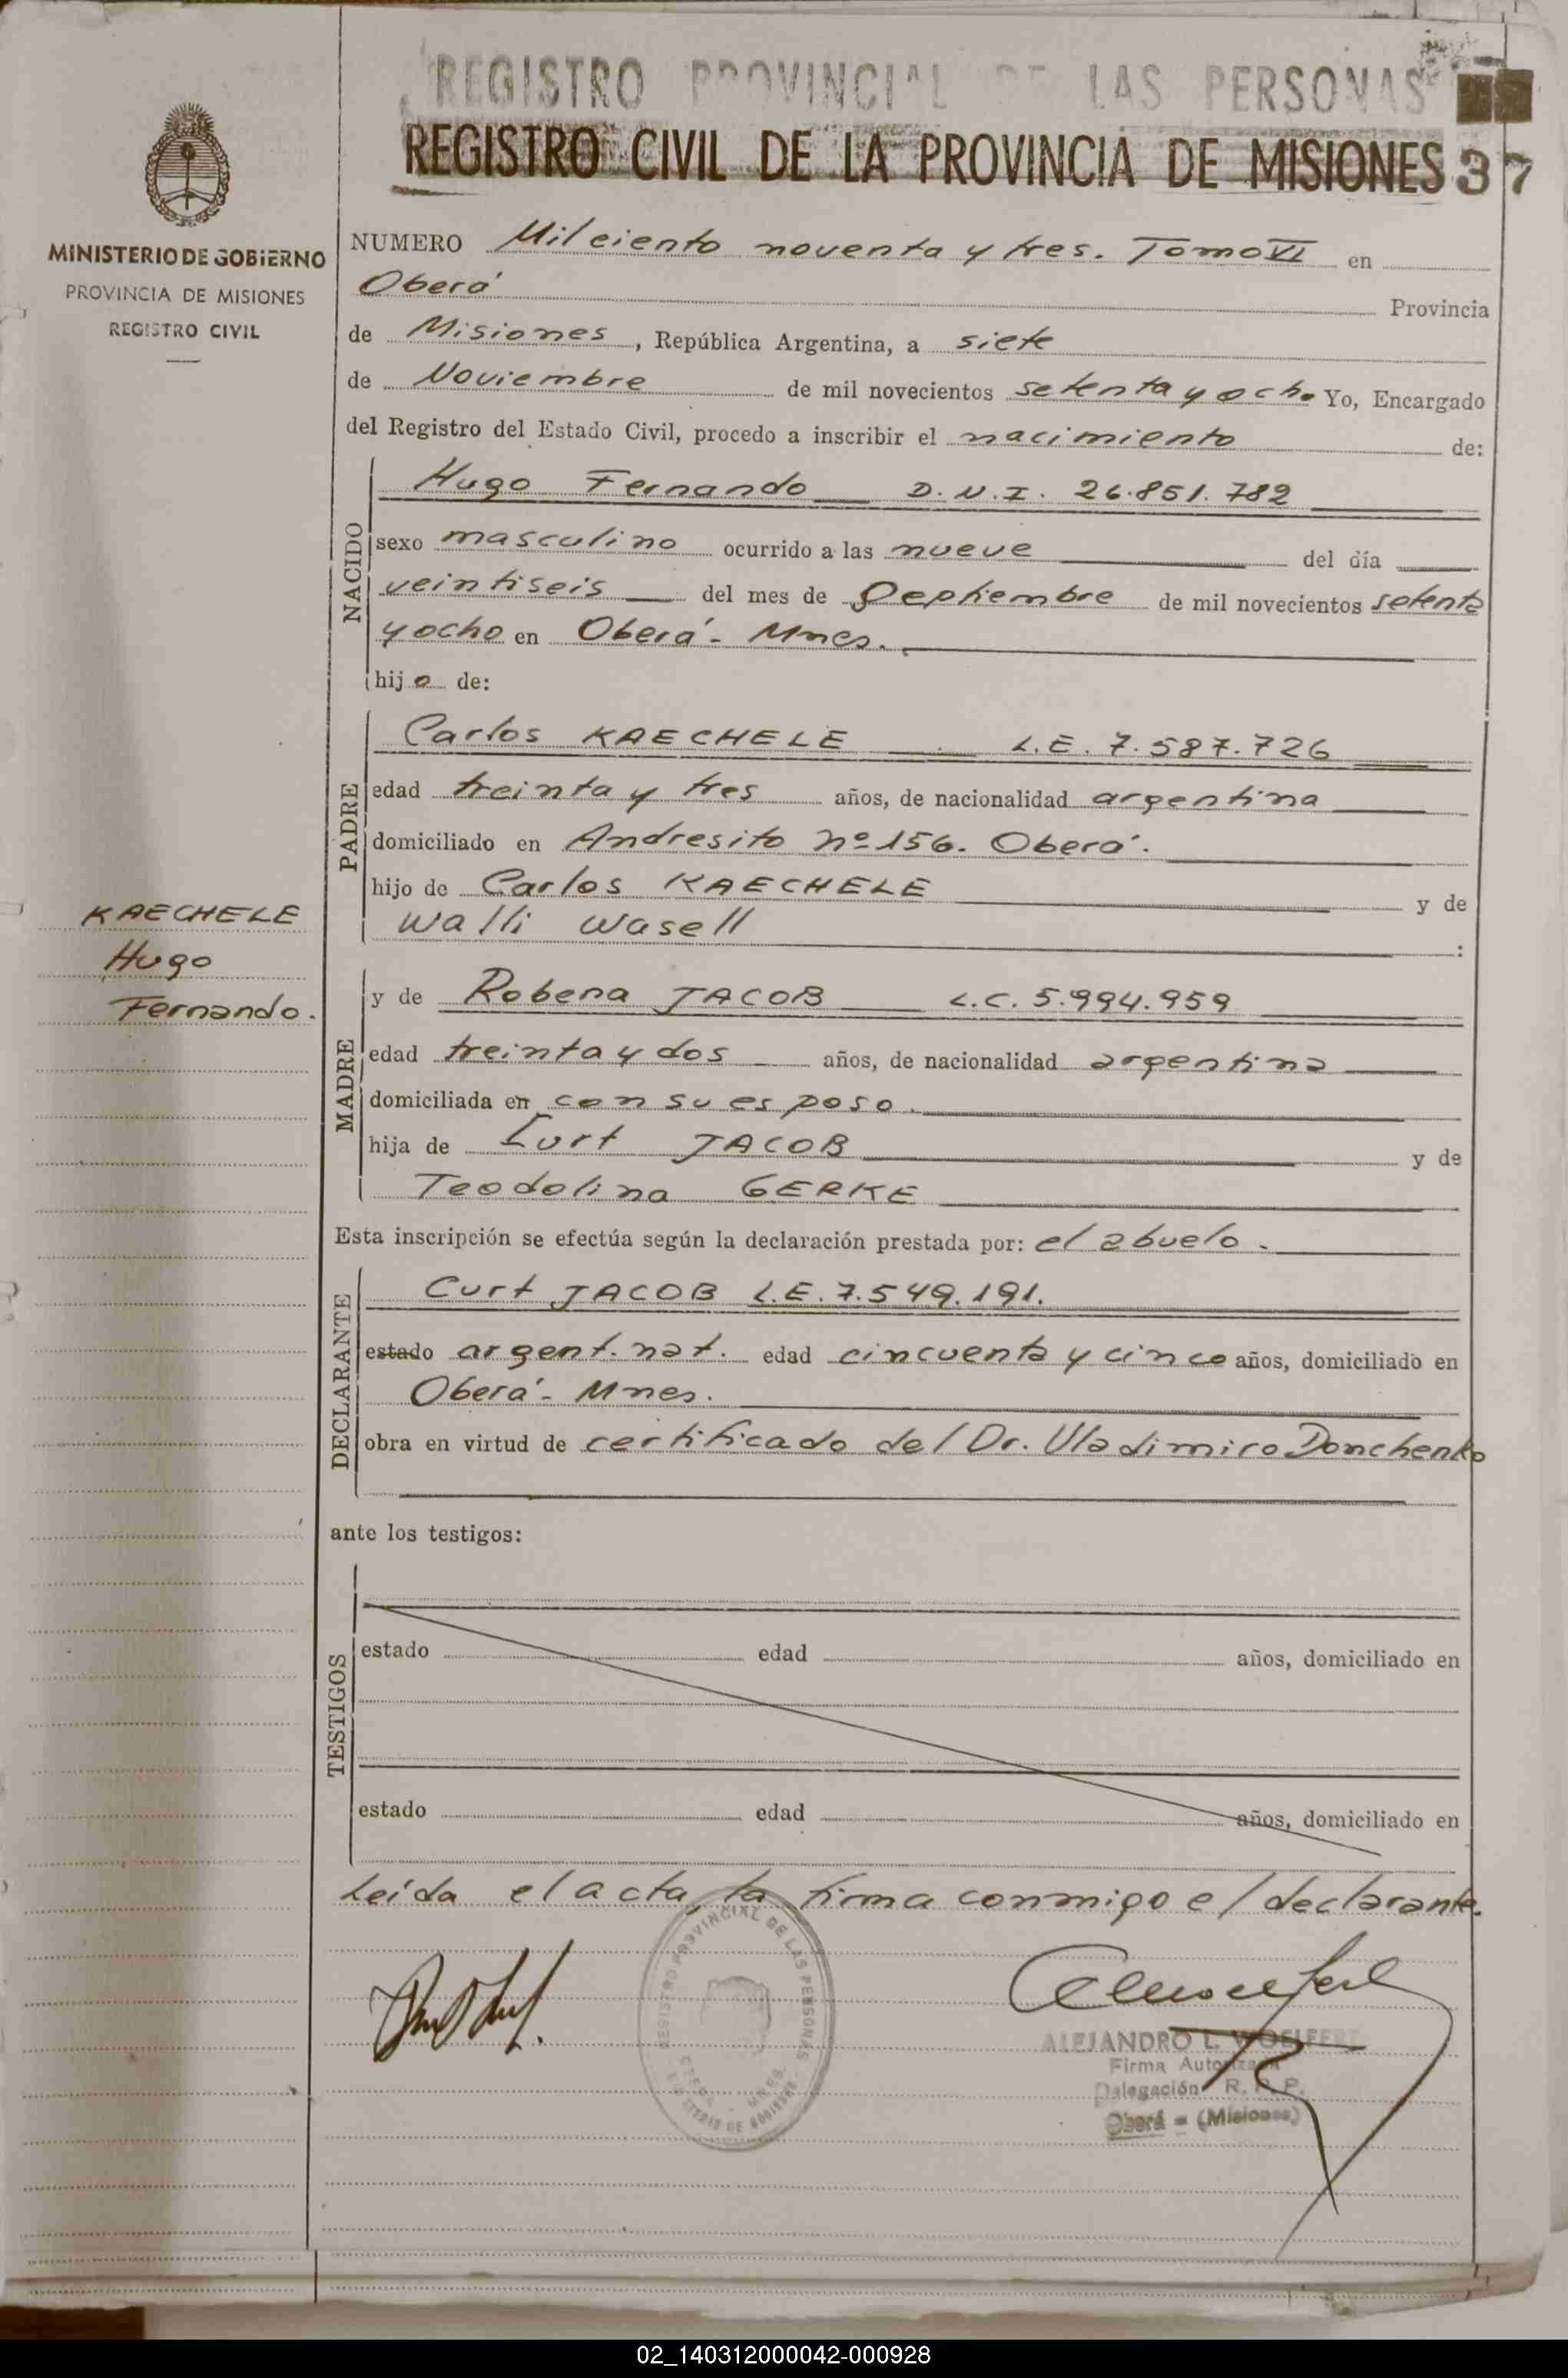 REGISTRO PROVINCIAL DE LAS PERSONAS
REGISTRO CIVIL DE LA PROVINCIA DE MISIONES 37
MINISTERIO DE GOBIERNO
PROVINCIA DE MISIONES
REGISTRO CIVIL
NUMERO Mil ciento noventa y tres. Tomo VI en
Oberá Provincia
de Misiones, República Argentina, a siete
de Noviembre de mil novecientos setenta y ocho Yo, Encargado
del Registro del Estado Civil, procedo a inscribir el nacimiento de:
NACIDO
Hugo Fernando D.N.I. 26.851.782
sexo masculino ocurrido a las nueve del día
veintiseis del mes de Septiembre de mil novecientos setenta
y ocho en Oberá - Mnes.
hijo de:
PADRE
Carlos KAECHELE L.E. 7.587.726
edad treinta y tres años, de nacionalidad argentina
domiciliado en Andresito nº 156. Oberá.
hijo de Carlos KAECHELE y de
Walli Wasell :
KAECHELE
Hugo
Fernando.
MADRE
y de Robena JACOB L.C. 5.994.959
edad treinta y dos años, de nacionalidad argentina
domiciliada en con su esposo.
hija de Curt JACOB y de
Teodolina GERKE
Esta inscripción se efectúa según la declaración prestada por: el abuelo.
DECLARANTE
Curt JACOB L.E. 7.549.191.
estado argent. nat. edad cincuenta y cinco años, domiciliado en
Oberá - Mnes.
obra en virtud de certificado del Dr. Vladimiro Donchenko
ante los testigos:
TESTIGOS
estado edad años, domiciliado en
estado edad años, domiciliado en
Leída el acta, la firma conmigo el declarante.
REGISTRO PROVINCIAL DE LAS PERSONAS
MINISTERIO DE GOBIERNO
ALEJANDRO L. WOELFERT
Firma Autorizada
Delegación R. P. P.
Oberá - (Misiones)
02_140312000042-000928